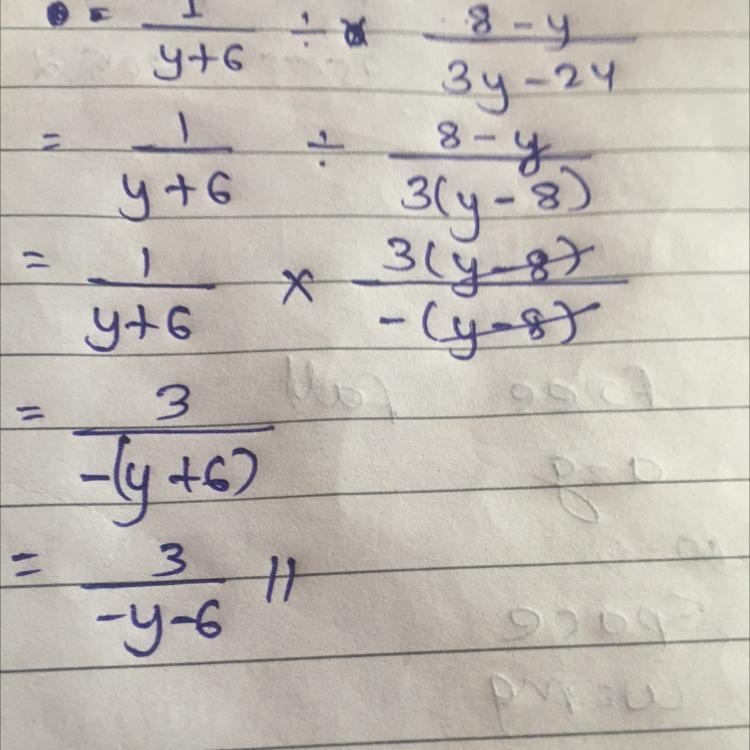 = 1/(y+6) ÷ (8-y)/(3y-24)
= 1/(y+6) ÷ (8-y)/(3(y-8))
= 1/(y+6) × 3(y-8)/(-(y-8))
= 3/(-(y+6))
= 3/(-y-6) //